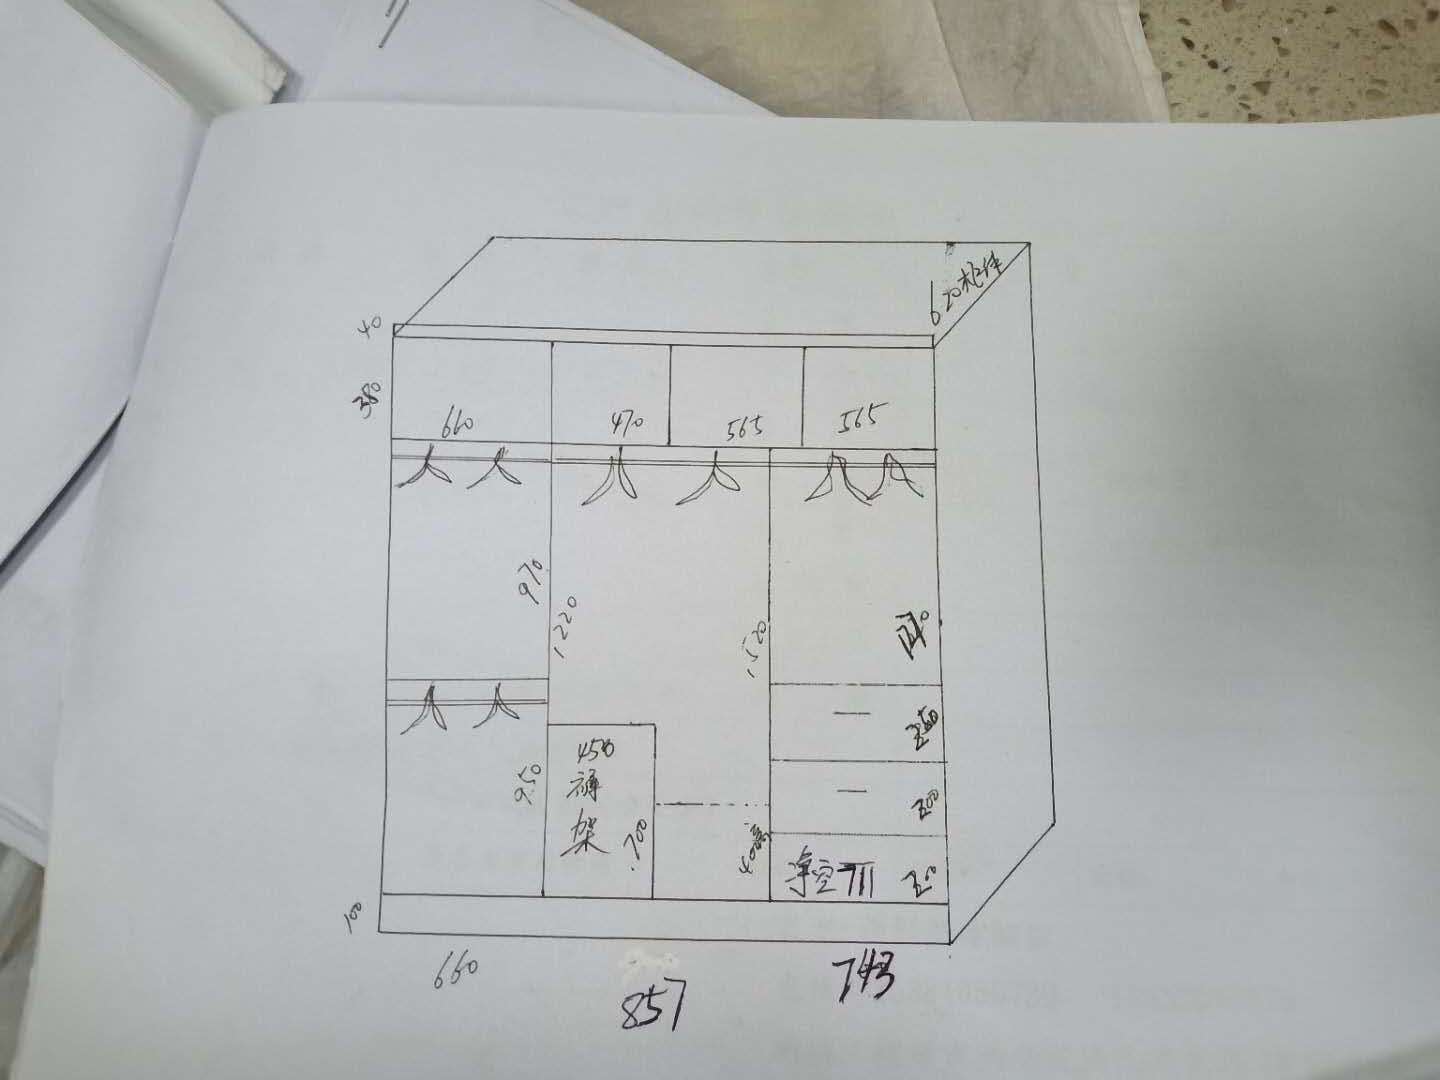 620柜体
40
380
660
470
565
565
970
1220
1520
950
450
裤
架
700
400
200
净空711
100
660
857
743